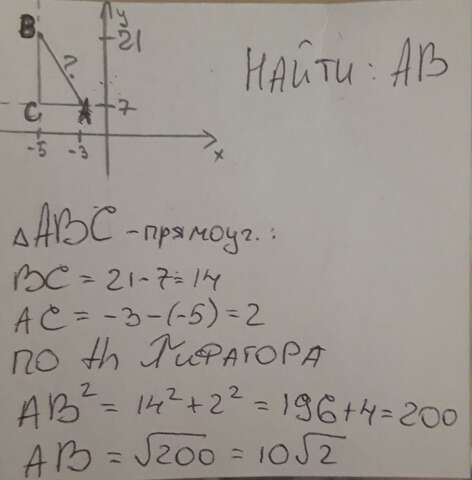 y
B
21
НАЙТИ: AB
?
C
A
7
-5
-3
x
△ABC - прямоуг.:
BC = 21-7=14
AC = -3-(-5)=2
ПО th ПИФАГОРА
AB² = 14²+2² = 196+4=200
AB = √200 = 10√2